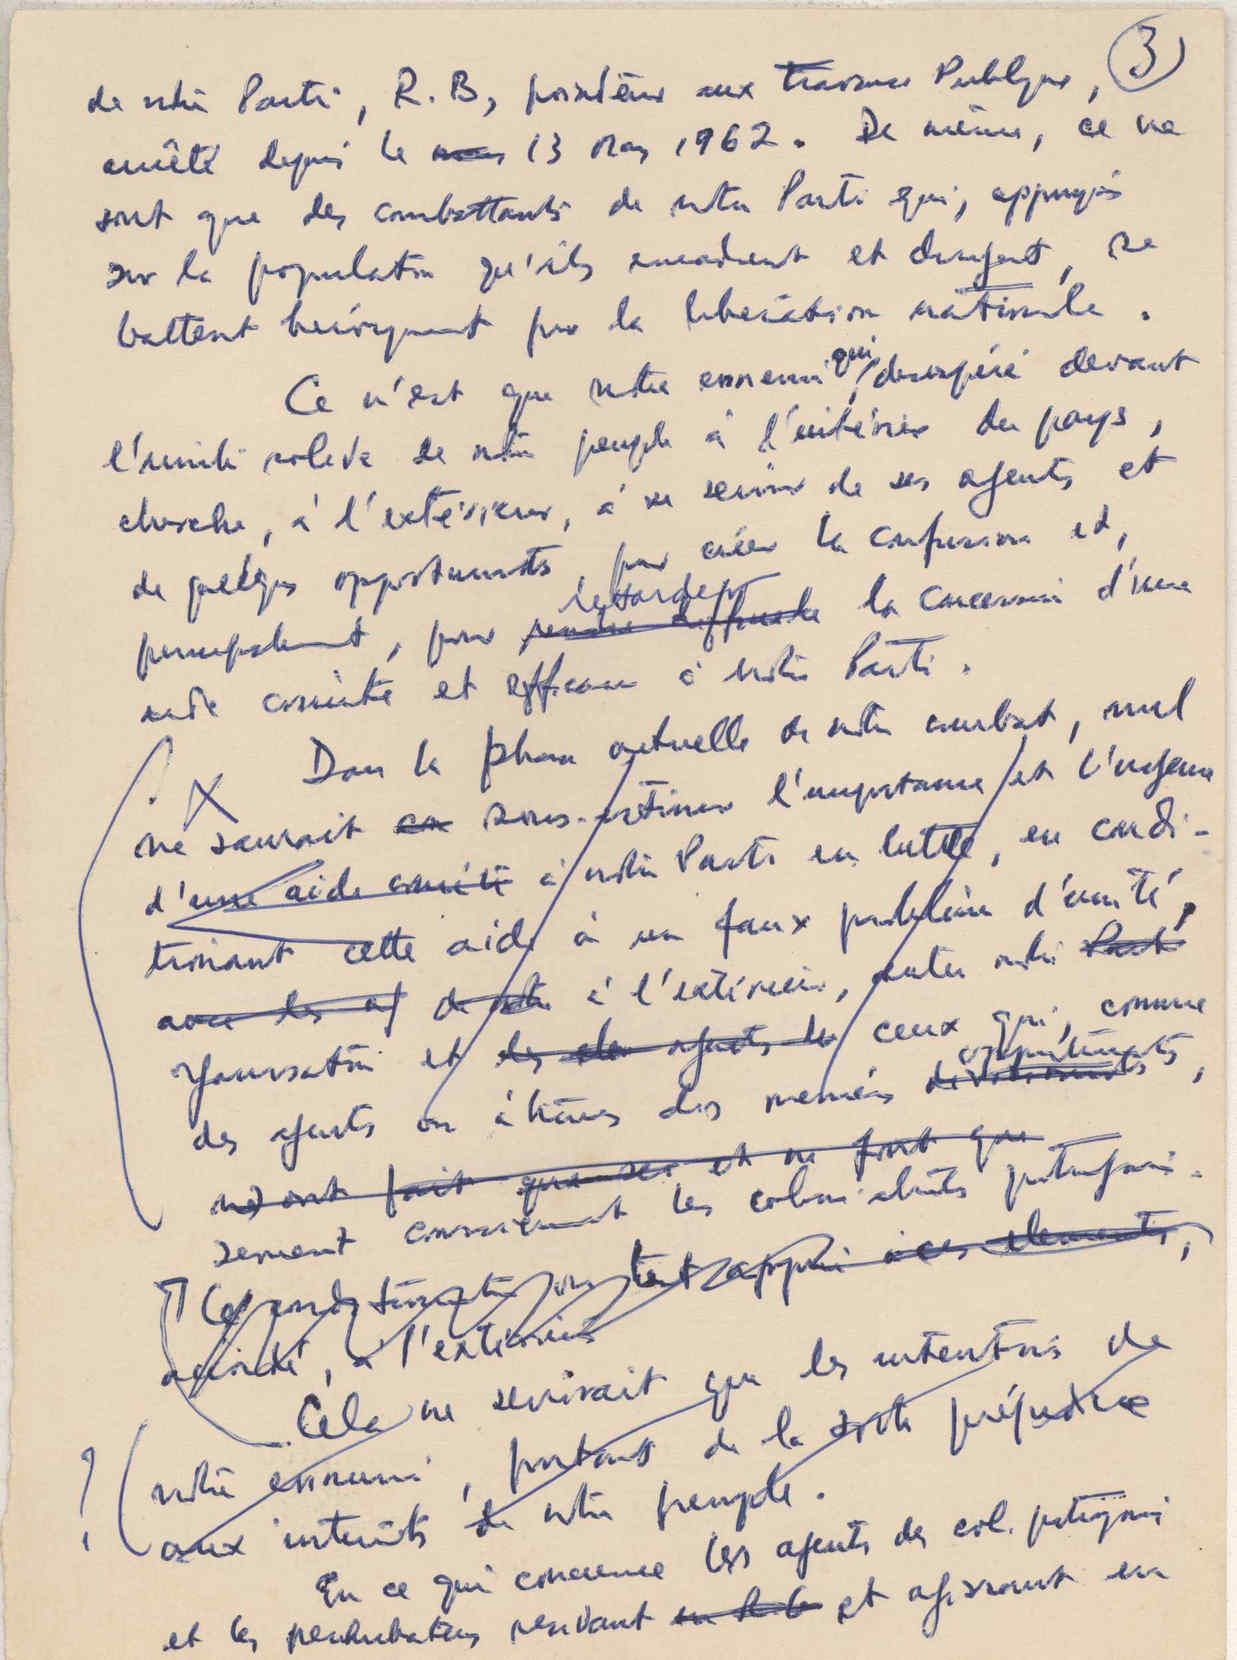 3
de notre Parti, R. B, pointeur aux travaux Publiques,
arrêté depuis le mars 13 Mars 1962. De même, ce ne
sont que des combattants de notre Parti qui, appuyés
sur la population qu'ils encadrent et dirigent, se
battent héroïquement pour la libération nationale.
Ce n'est que notre ennemi qui, désespéré devant
l'unité solide de notre peuple à l'intérieur du pays,
cherche, à l'extérieur, à se servir de ses agents et
de quelques opportunistes, pour créer la confusion et,
retarder
principalement, pour rendre difficile la concession d'une
aide concrète et efficace à notre Parti.
Dans la phase actuelle de notre combat, nul
X
ne saurait sous-estimer l'importance et l'urgence
d'une aide concrète à notre Parti en lutte, en condi-
tionant cette aide à un faux problème d'unité,
avec les ag de notre à l'extérieur, entre notre Parti
organisation et les agents de ceux qui, comme
opportunistes
des agents ou à travers des menées divisionnistes,
n'ont fait que et ne font que
servent consciemment les colonialistes portugais.
tout appui à ces elements,
, à l'extérieur
Cela ne servirait que les intentions de
? notre ennemi, portant de la sorte préjudice
aux intérêts de notre peuple.
En ce qui concerne les agents des col. portugais
et les perturbateurs résidant et agissant en